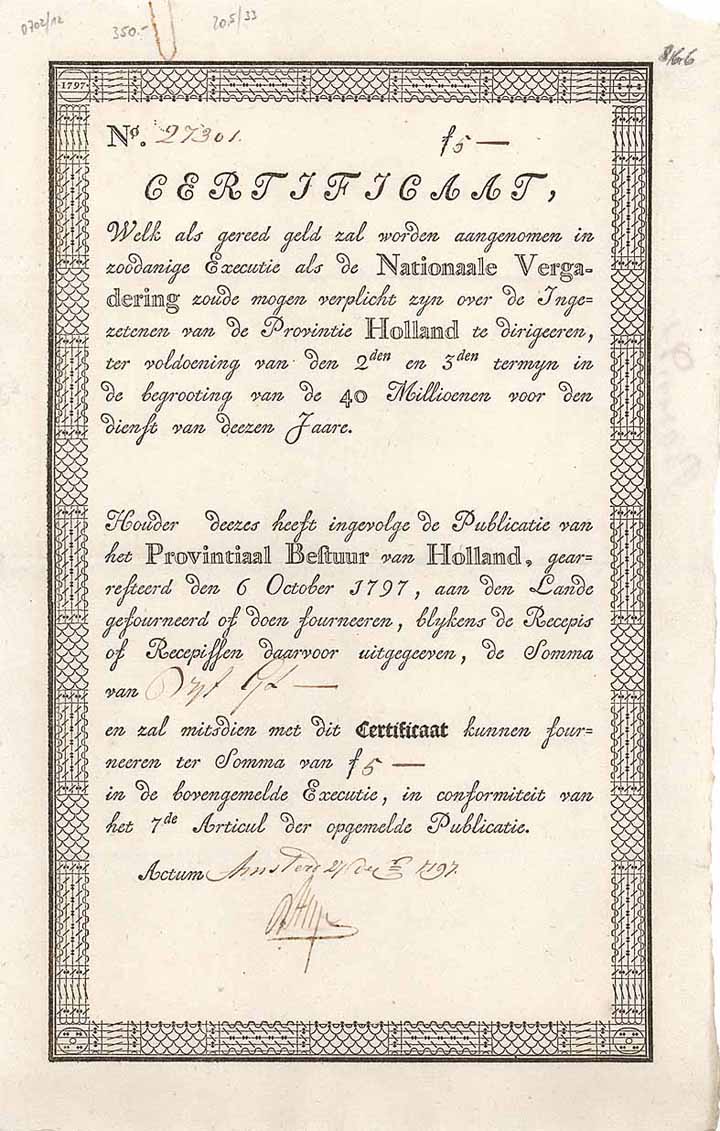 0702/12
350.-
20.5/33
1797
Nº. 27301.
ƒ5 —
CERTIFICAAT,
Welk als gereed geld zal worden aangenomen in
zoodanige Executie als de Nationaale Verga-
dering zoude mogen verplicht zyn over de Inge=
zetenen van de Provintie Holland te dirigeeren,
ter voldoening van den 2den en 3den termyn in
de begrooting van de 40 Millioenen voor den
dienſt van deezen Jaare.
Houder deezes heeft ingevolge de Publicatie van
het Provintiaal Beſtuur van Holland, gear=
reſteerd den 6 October 1797, aan den Lande
gefourneerd of doen fourneeren, blykens de Recepis
of Recepiſſen daarvoor uitgegeven, de Somma
van Vyf Gl —
en zal mitsdien met dit Certificaat kunnen four=
neeren ter Somma van ƒ5 —
in de bovengemelde Executie, in conformiteit van
het 7de Articul der opgemelde Publicatie.
Actum Amsterd 1797.